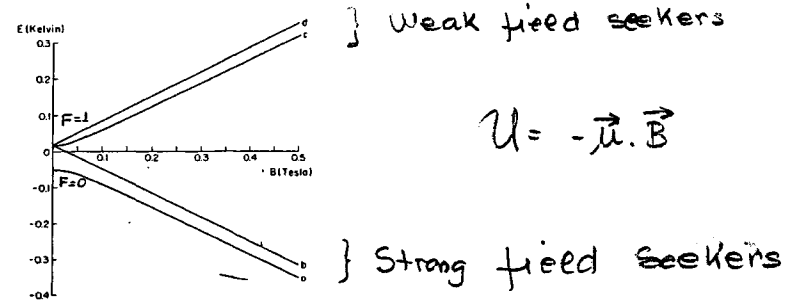 E (Kelvin)
0.3
0.2
0.1
0
-0.1
-0.2
-0.3
-0.4
F=1
F=0
0.1 0.2 0.3 0.4 0.5
B (Tesla)
d
c
b
a
} Weak field seekers
U = -μ⃗ . B⃗
} Strong field seekers